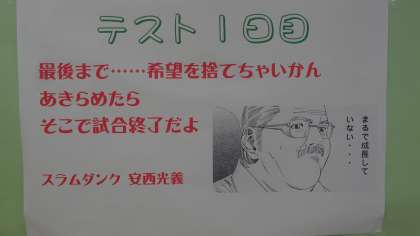 テスト1日目
最後まで……希望を捨てちゃいかん
あきらめたら
そこで試合終了だよ
まるで成長して
いない・・・
スラムダンク 安西光義